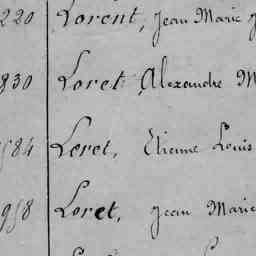 220 Lorent, Jean Marie
830 Loret Alexandre M
584 Leret, Etienne Louis
958 Loret, Jean Marie